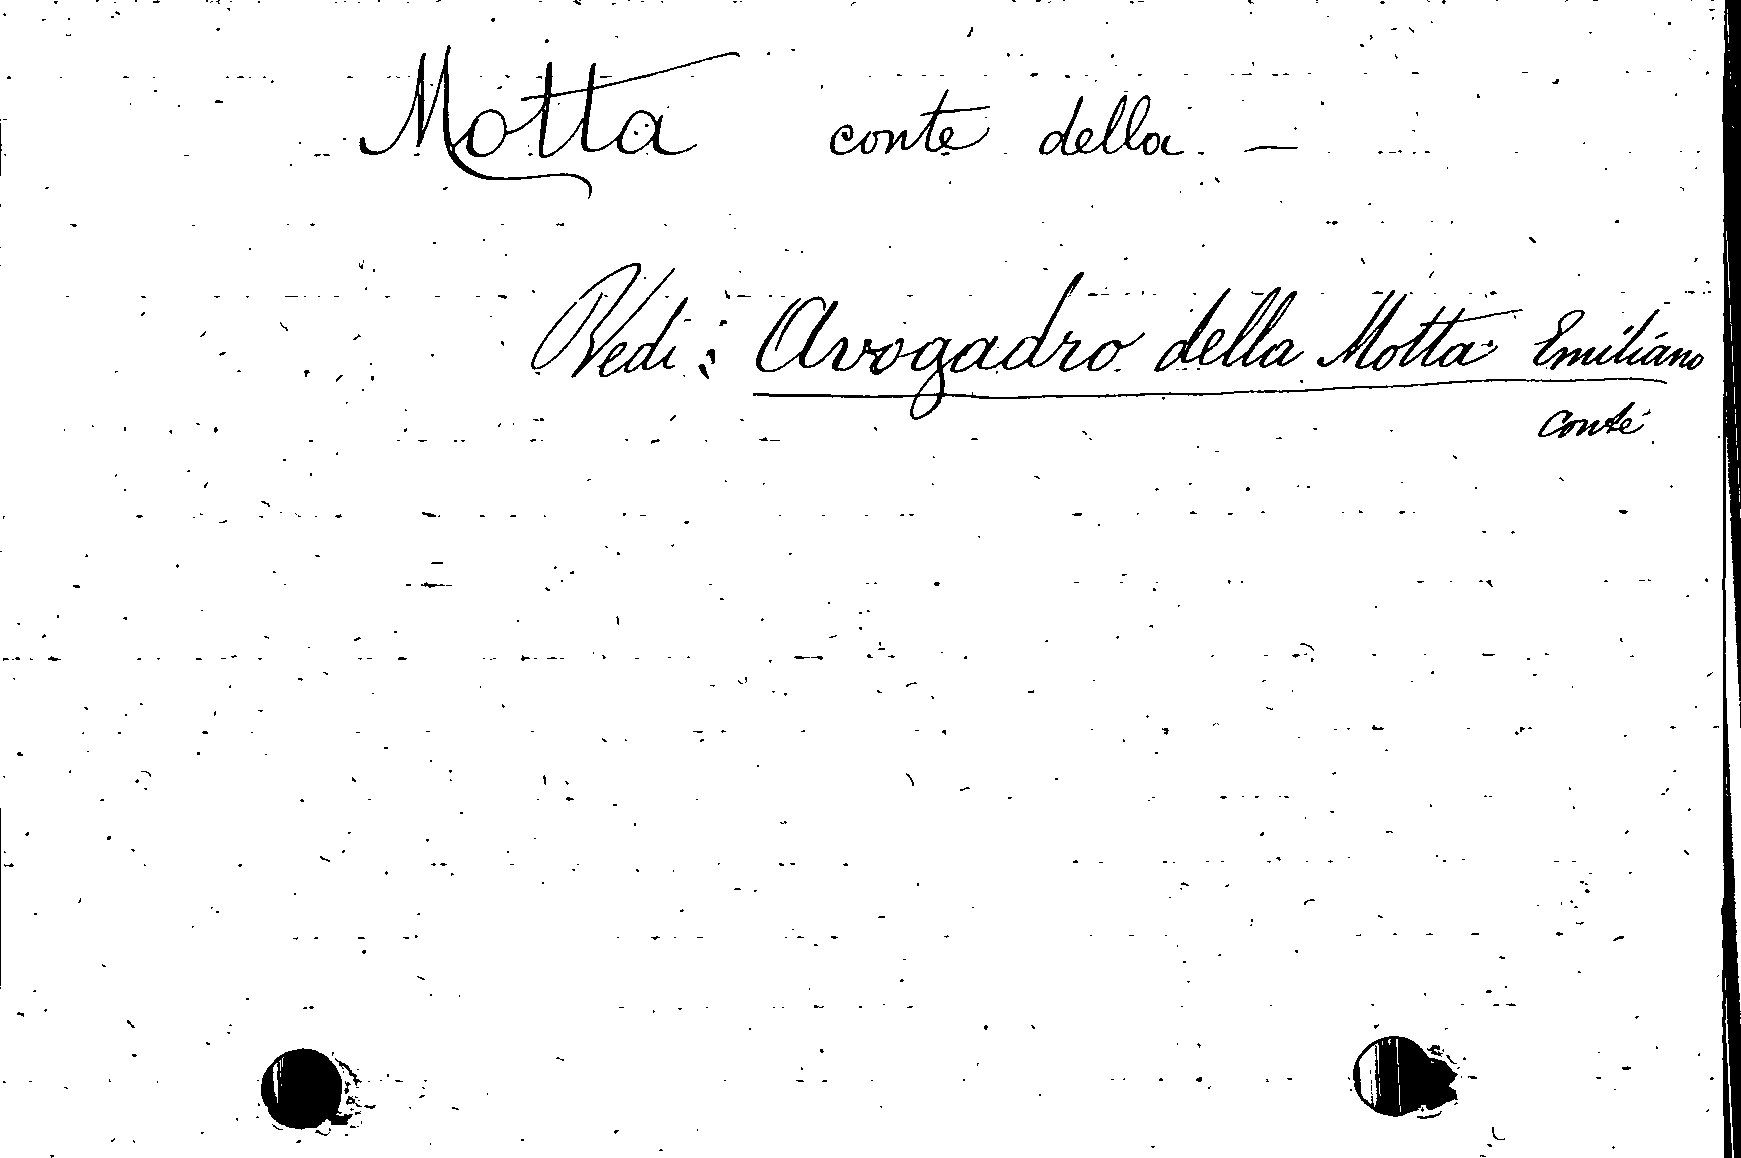 Motta conte della —
Vedi: Avogadro della Motta Emiliano
conte